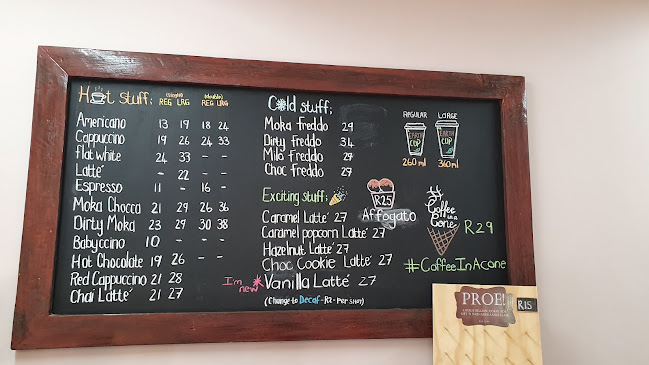 Hot stuff:
(Single) (Double)
REG LRG REG LRG
Americano 13 19 18 24
Cappuccino 19 26 24 33
flat white 24 33 - -
Latté - 22 - -
Espresso 11 - 16 -
Moka Chocca 21 29 26 36
Dirty Moka 23 29 30 38
Babyccino 10 - - -
Hot Chocolate 19 26 - -
Red Cappuccino 21 28
Chai Latté 21 27
Cold stuff:
Moka freddo 29
Dirty freddo 34
Milo freddo 29
Choc freddo 29
REGULAR LARGE
EARTH CUP EARTH CUP
260 ml 360 ml
Exciting stuff:
Caramel Latté 27
Caramel popcorn Latté 27
Hazelnut Latté 27
Choc Cookie Latté 27
I'm new* Vanilla Latté 27
(Change to Decaf - R2 - Per shot)
R25
Affogato
Coffee in a Cone
R29
#CoffeeInAcone
PROE!
R15